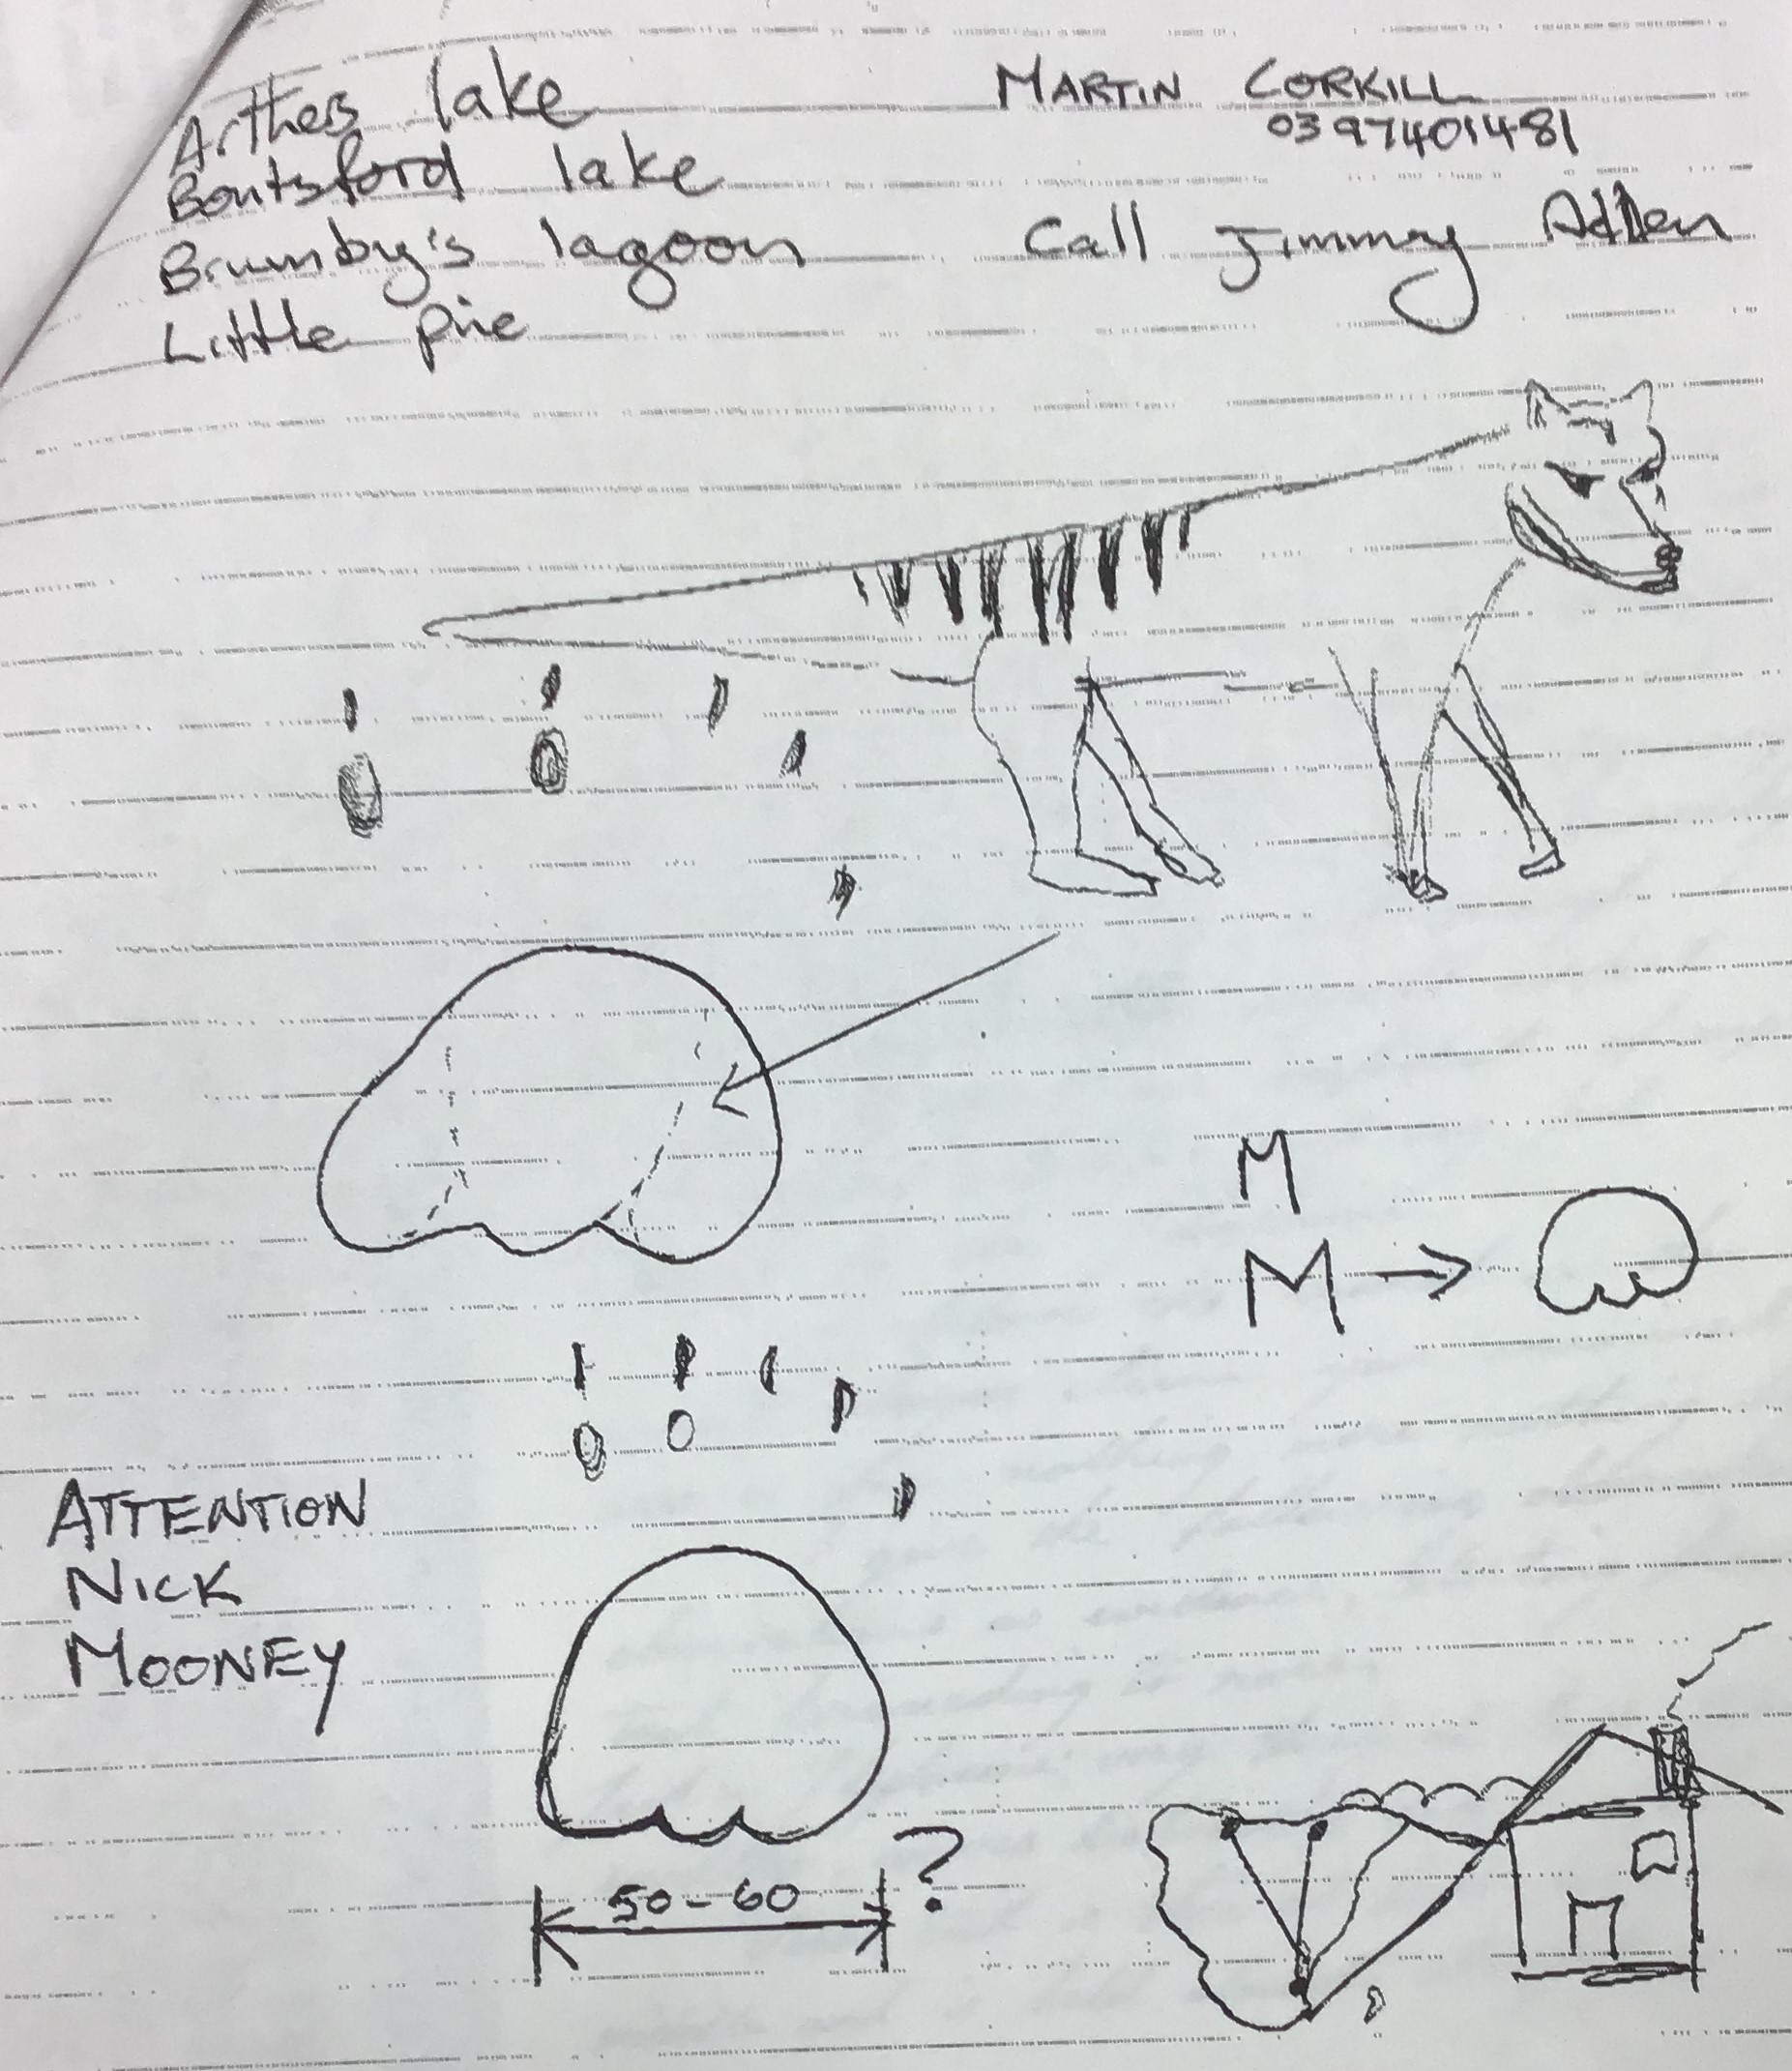 Arthers lake
Bontsford lake
Brumby's lagoon
Little pine
MARTIN CORKILL
0397401481
Call Jimmy Adlen
M
M
ATTENTION
NICK
MOONEY
50-60 ?